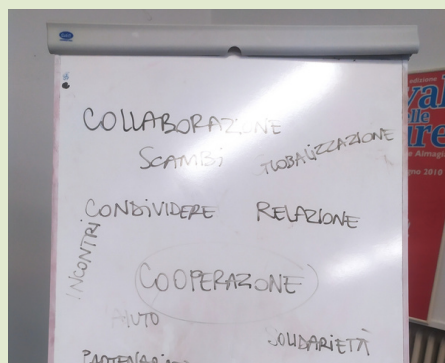 COLLABORAZIONE
SCAMBI
GLOBALIZZAZIONE
CONDIVIDERE RELAZIONE
INCONTRI
COOPERAZIONE
AIUTO
SOLIDARIETÀ